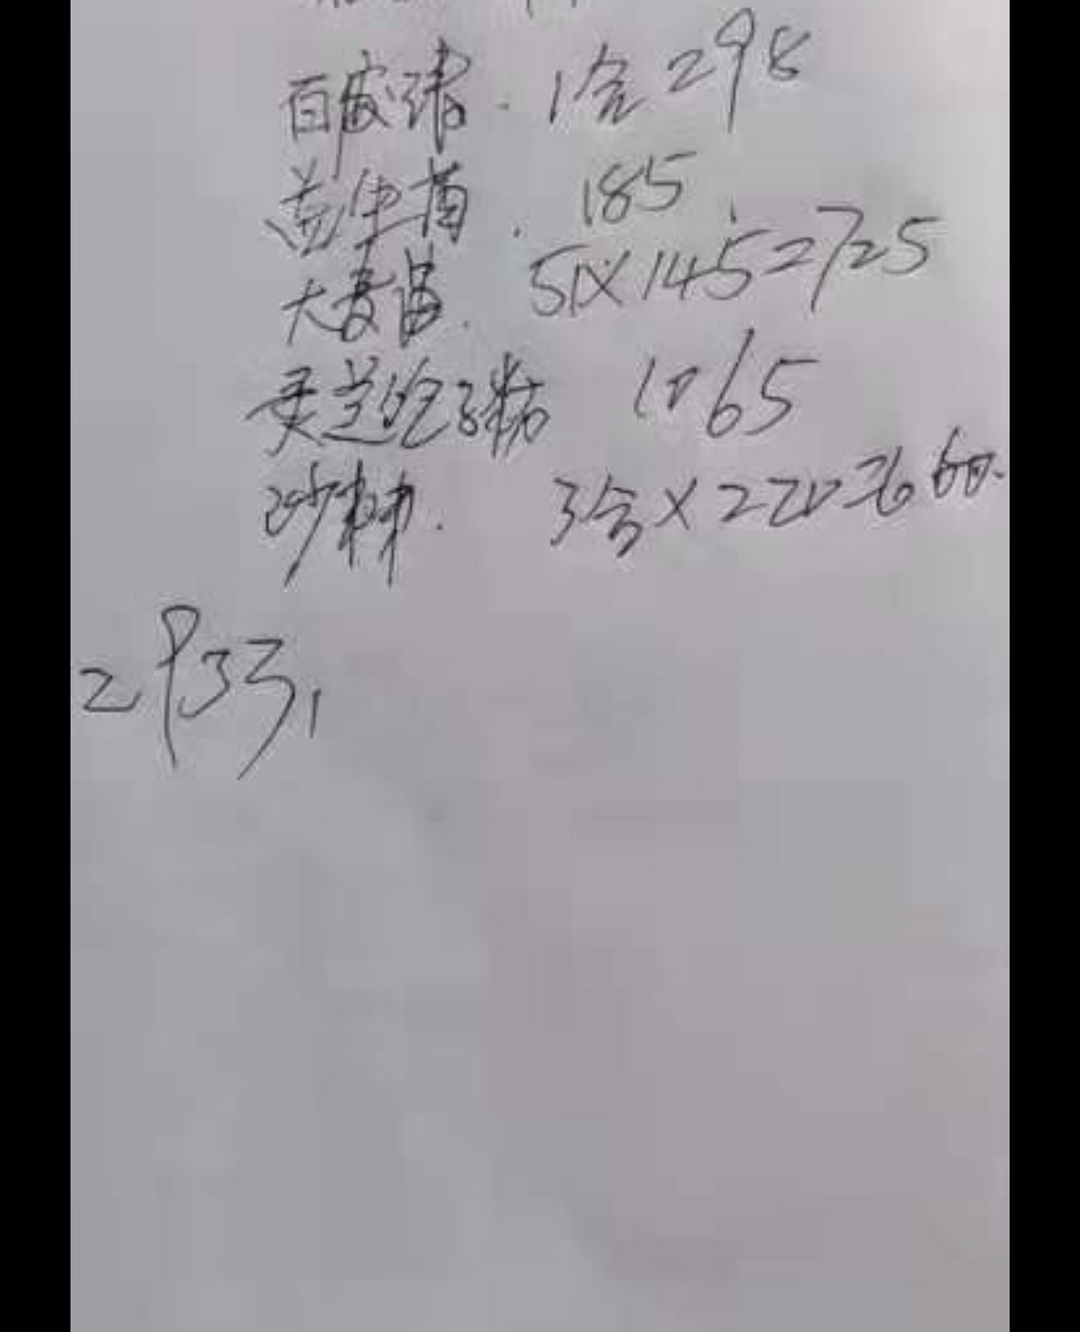 百 1合 298
益生菌. 185
大麦苗. 51×145=725
灵芝孢子粉 1065
沙棘. 3合×220=660.
2933,